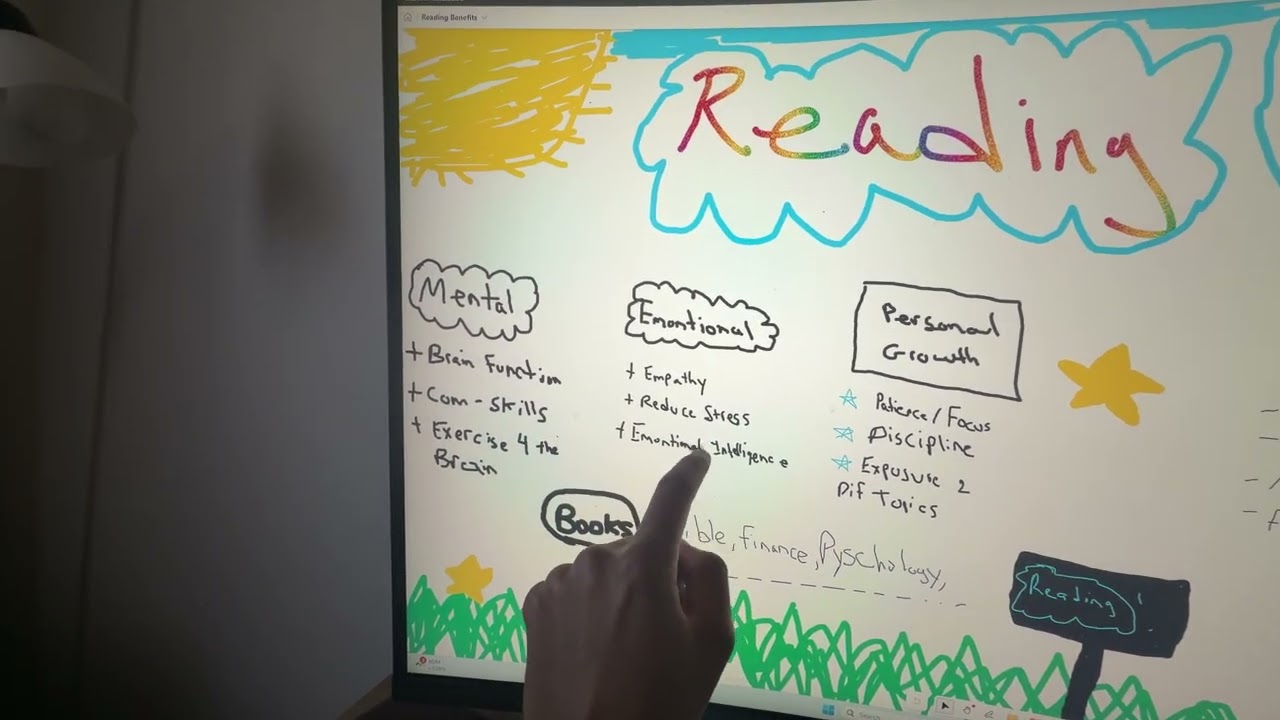 Reading Benefits
Reading
Mental
+ Brain Function
+ Com-Skills
+ Exercise 4 the
Brain
Emontional
+ Empathy
+ Reduce Stress
+ Emontional Intelligence
Personal
Growth
Patience/Focus
Discipline
Exposure 2
Dif Topics
Books
ible, Finance, Pyschology,
Reading
Search